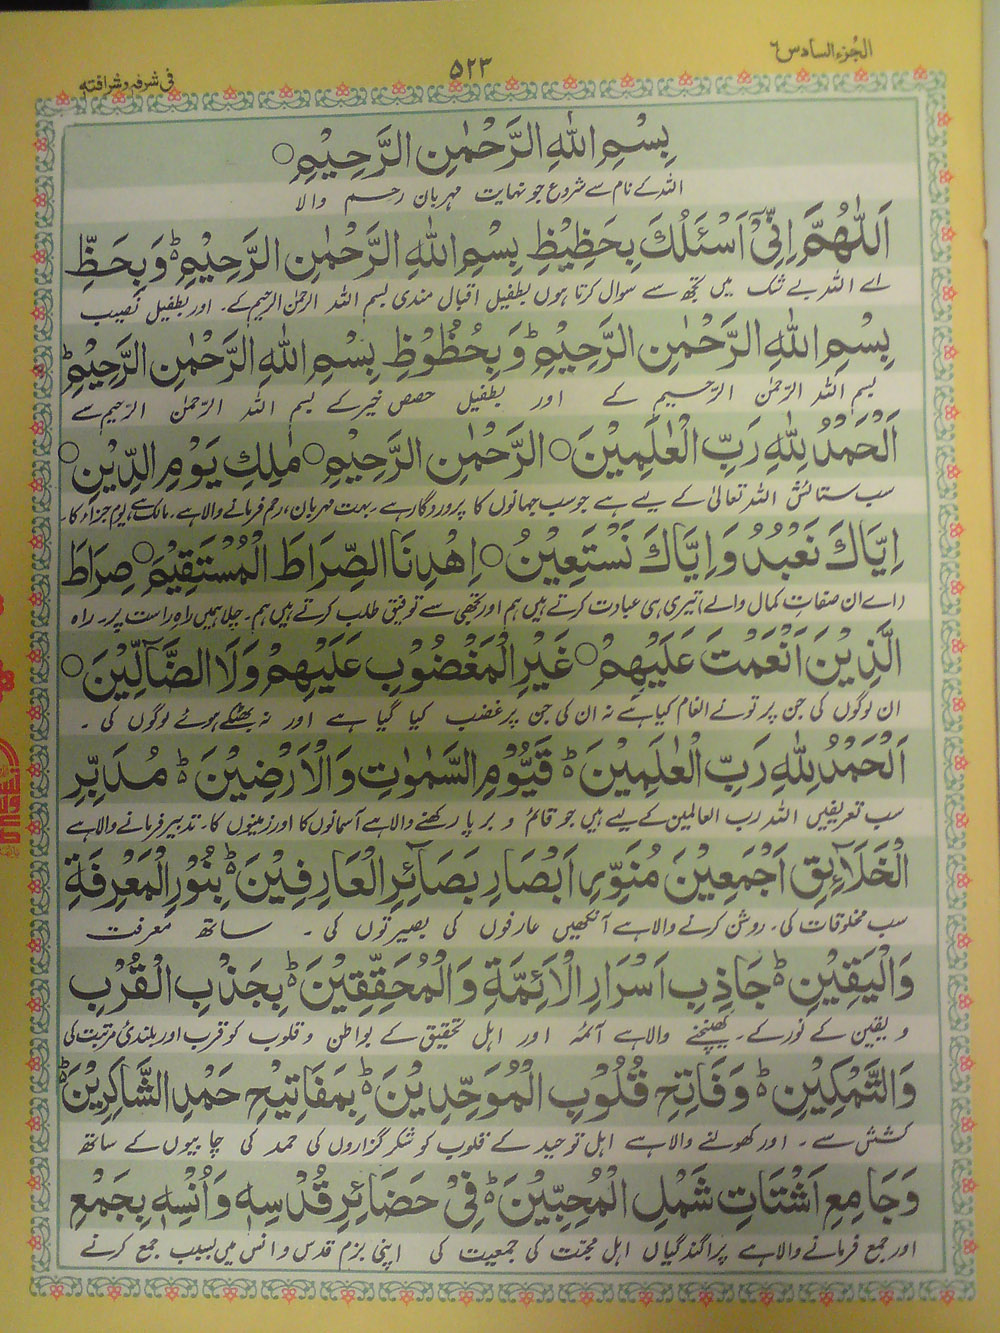 الجزء السادس ٦
٥٢٣
فی شرفہ و شرافتہ
بِسْمِ اللهِ الرَّحْمٰنِ الرَّحِيْمِ○
اللہ کے نام سے شروع جو نہایت مہربان رحم والا
اَللّٰهُمَّ اِنِّىْٓ اَسْئَلُكَ بِحَظِيْظِ بِسْمِ اللهِ الرَّحْمٰنِ الرَّحِيْمِ ؕ وَبِحَظِّ
اے اللہ بے شک میں تجھ سے سوال کرتا ہوں بطفیل اقبال مندی بسم اللہ الرحمٰن الرحیم کے۔ اور بطفیل نصیب
بِسْمِ اللهِ الرَّحْمٰنِ الرَّحِيْمِ ؕ وَبِحُظُوْظِ بِسْمِ اللهِ الرَّحْمٰنِ الرَّحِيْمِ ؕ
بسم اللہ الرحمٰن الرحیم کے اور بطفیل حصص خیر کے بسم اللہ الرّحمٰن الرّحیم سے
اَلْحَمْدُ لِلّٰهِ رَبِّ الْعٰلَمِيْنَ○ الرَّحْمٰنِ الرَّحِيْمِ○ مٰلِكِ يَوْمِ الدِّيْنِ○
سب ستائش اللہ تعالیٰ کے لیے ہے جو سب جہانوں کا پروردگار ہے۔ بہت مہربان، رحم فرمانے والا ہے۔ مالک ہے یوم جزاء کا۔
اِيَّاكَ نَعْبُدُ وَاِيَّاكَ نَسْتَعِيْنُ○ اِهْدِنَا الصِّرَاطَ الْمُسْتَقِيْمَ○ صِرَاطَ
(اے ان صفات کمال والے) تیری ہی عبادت کرتے ہیں ہم اور تجھی سے توفیق طلب کرتے ہیں ہم۔ چلا ہمیں راہ راست پر۔ راہ
الَّذِيْنَ اَنْعَمْتَ عَلَيْهِمْ○ غَيْرِ الْمَغْضُوْبِ عَلَيْهِمْ وَلَا الضَّآلِّيْنَ○
ان لوگوں کی جن پر تو نے انعام کیا ہے نہ ان کی جن پر غضب کیا گیا ہے اور نہ بھٹکے ہوئے لوگوں کی ۔
اَلْحَمْدُ لِلّٰهِ رَبِّ الْعٰلَمِيْنَ ؕ قَيُّوْمِ السَّمٰوٰتِ وَالْاَرْضِيْنَ ؕ مُدَبِّرِ
سب تعریفیں اللہ رب العالمین کے لیے ہیں جو قائم و برپا رکھنے والا ہے آسمانوں کا اور زمینوں کا۔ تدبیر فرمانے والا ہے
الْخَلَآئِقِ اَجْمَعِيْنَ مُنَوِّرِ اَبْصَارِ بَصَآئِرِ الْعَارِفِيْنَ ؕ بِنُوْرِ الْمَعْرِفَةِ
سب مخلوقات کی۔ روشن کرنے والا ہے آنکھیں عارفوں کی بصیرتوں کی ۔ ساتھ معرفت
وَالْيَقِيْنِ ؕ جَاذِبِ اَسْرَارِ الْاَئِمَّةِ وَالْمُحَقِّقِيْنَ ؕ بِجَذْبِ الْقُرْبِ
و یقین کے نور کے۔ کھینچنے والا ہے آئمہ اور اہل تحقیق کے بواطن و قلوب کو قرب اور بلندیٔ مرتبت کی
وَالتَّمْكِيْنِ ؕ وَفَاتِحِ قُلُوْبِ الْمُوَحِّدِيْنَ ؕ بِمَفَاتِيْحِ حَمْدِ الشَّاكِرِيْنَ ؕ
کشش سے ۔ اور کھولنے والا ہے اہل توحید کے قلوب کو شکر گزاروں کی حمد کی چابیوں کے ساتھ
وَجَامِعِ اَشْتَاتِ شَمْلِ الْمُحِبِّيْنَ ؕ فِىْ حَضَائِرِ قُدْسِهٖ وَاُنْسِهٖ بِجَمْعِ
اور جمع فرمانے والا ہے پراگندگیاں اہل محبّت کی جمعیت کی اپنی بزم قدس و انس میں بسبب جمع کرنے